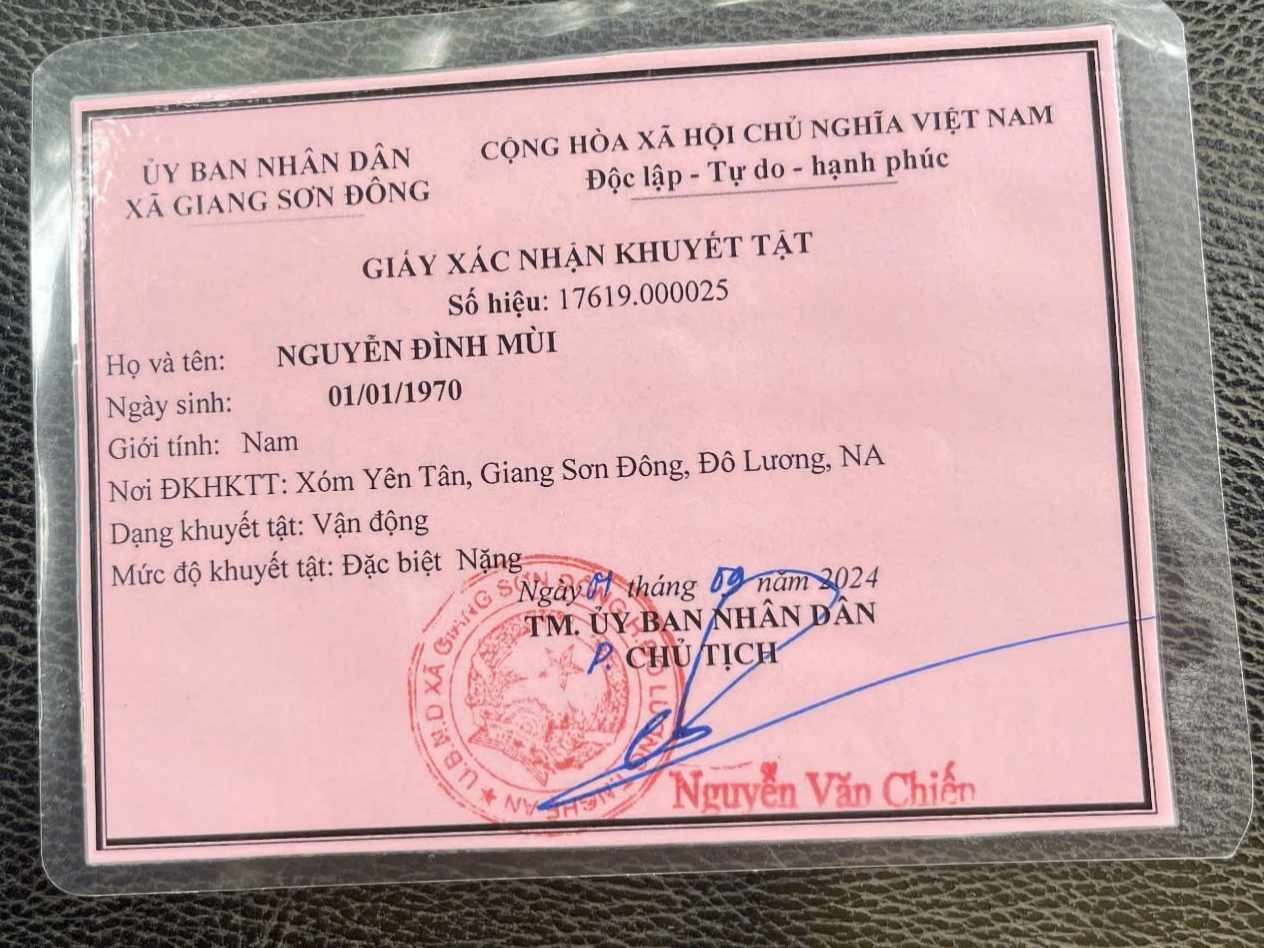 ỦY BAN NHÂN DÂN
XÃ GIANG SƠN ĐÔNG
CỘNG HÒA XÃ HỘI CHỦ NGHĨA VIỆT NAM
Độc lập - Tự do - hạnh phúc
GIẤY XÁC NHẬN KHUYẾT TẬT
Số hiệu: 17619.000025
Họ và tên: NGUYỄN ĐÌNH MÙI
Ngày sinh: 01/01/1970
Giới tính: Nam
Nơi ĐKHKTT: Xóm Yên Tân, Giang Sơn Đông, Đô Lương, NA
Dạng khuyết tật: Vận động
Mức độ khuyết tật: Đặc biệt Nặng
Ngày tháng 09 năm 2024
TM. ỦY BAN NHÂN DÂN
P. CHỦ TỊCH
U.B.N.D XÃ GIANG SƠN ĐÔNG LƯƠNG T.NGHỆ AN
Nguyễn Văn Chiến